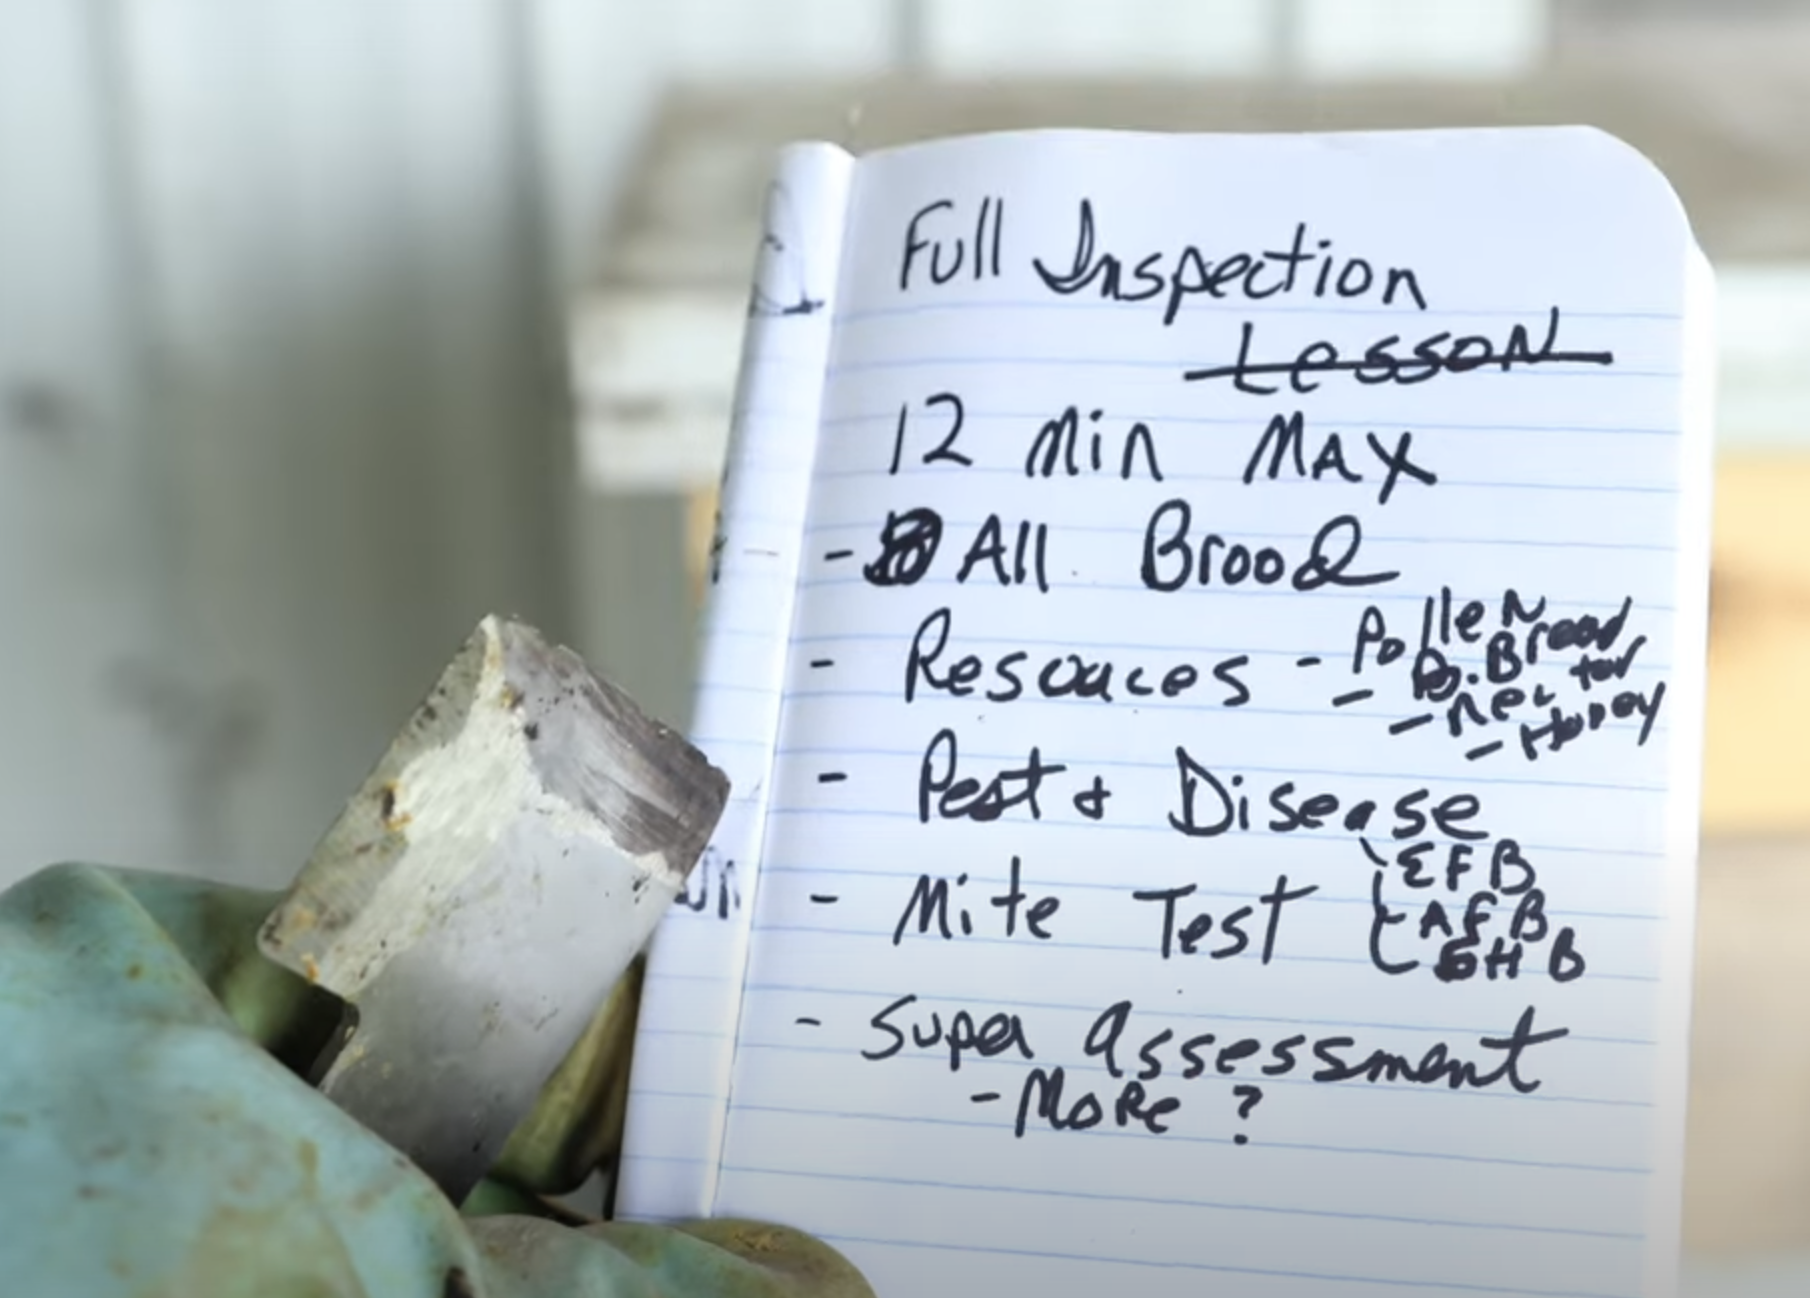 Full Inspection
Lesson
12 Min MAX
- All Brood
- Resouces - Pollen
- B.Bread
- nectar
- Honey
- Pest & Disease
EFB
- Mite Test
AFB
SHB
- Super Assessment
- More ?